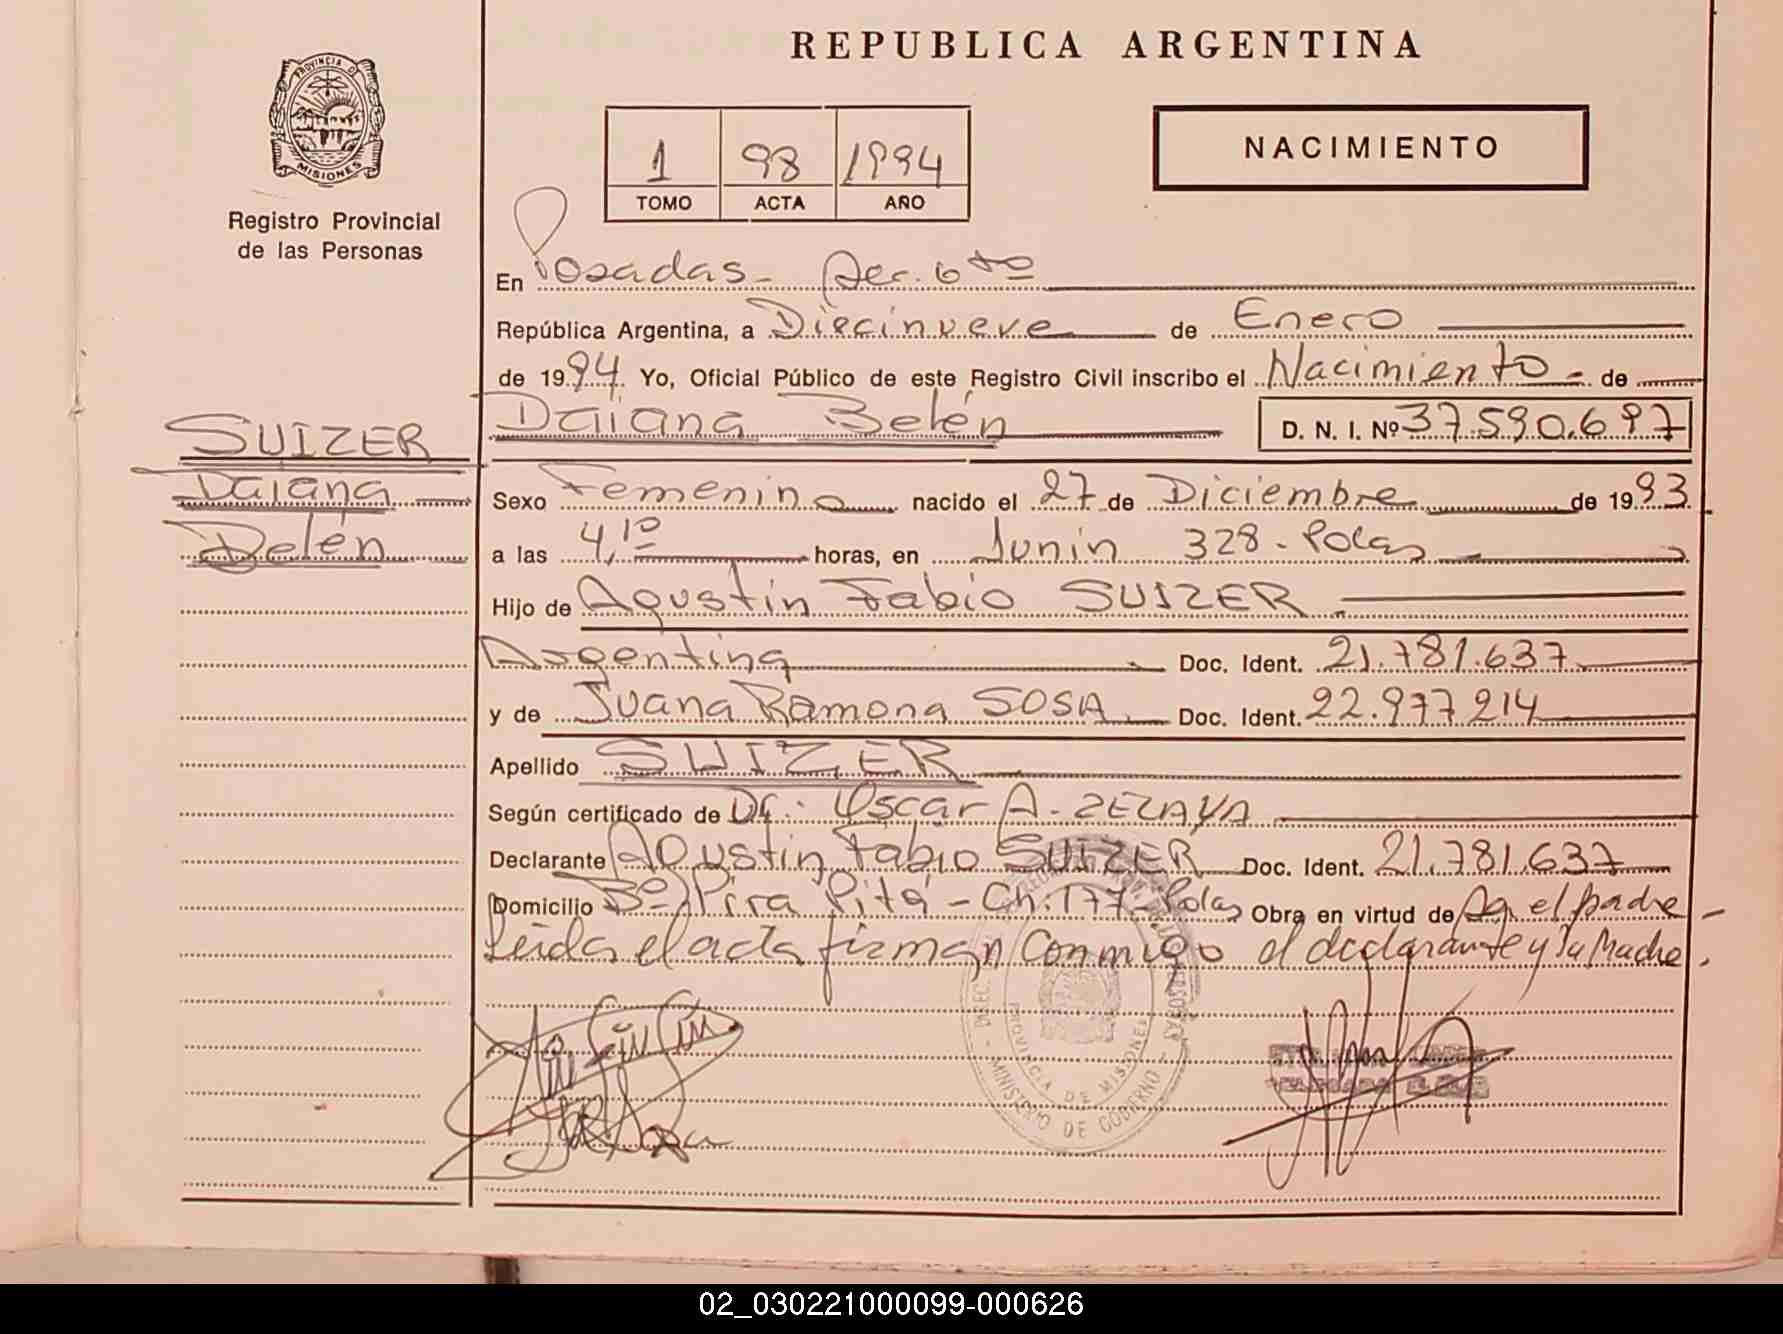 REPUBLICA ARGENTINA
PROVINCIA DE MISIONES
Registro Provincial
de las Personas
1 98 1994
TOMO ACTA AÑO
NACIMIENTO
En Posadas - Sec. 6to
República Argentina, a Diecinueve de Enero
de 1994 Yo, Oficial Público de este Registro Civil inscribo el Nacimiento - de
Daiana Belén D. N. I. Nº 37.590.697
SUIZER
Daiana
Belén
Sexo Femenino nacido el 27 de Diciembre de 1993
a las 4,10 horas, en Junin 328 - Pdas
Hijo de Agustin Fabio SUIZER
Argentina Doc. Ident. 21.781.637
y de Juana Ramona SOSA Doc. Ident. 22.977214
Apellido SUIZER
Según certificado de Dr. Oscar A. ZELAYA
Declarante Agustin Fabio SUIZER Doc. Ident. 21.781.637
Domicilio Bº Pira Pitá - Ch. 177 - Pdas Obra en virtud de el padre -
Leida el acta firman conmigo el declarante y la Madre.
PROVINCIA DE MISIONES
MINISTERIO DE GOBIERNO
02_030221000099-000626